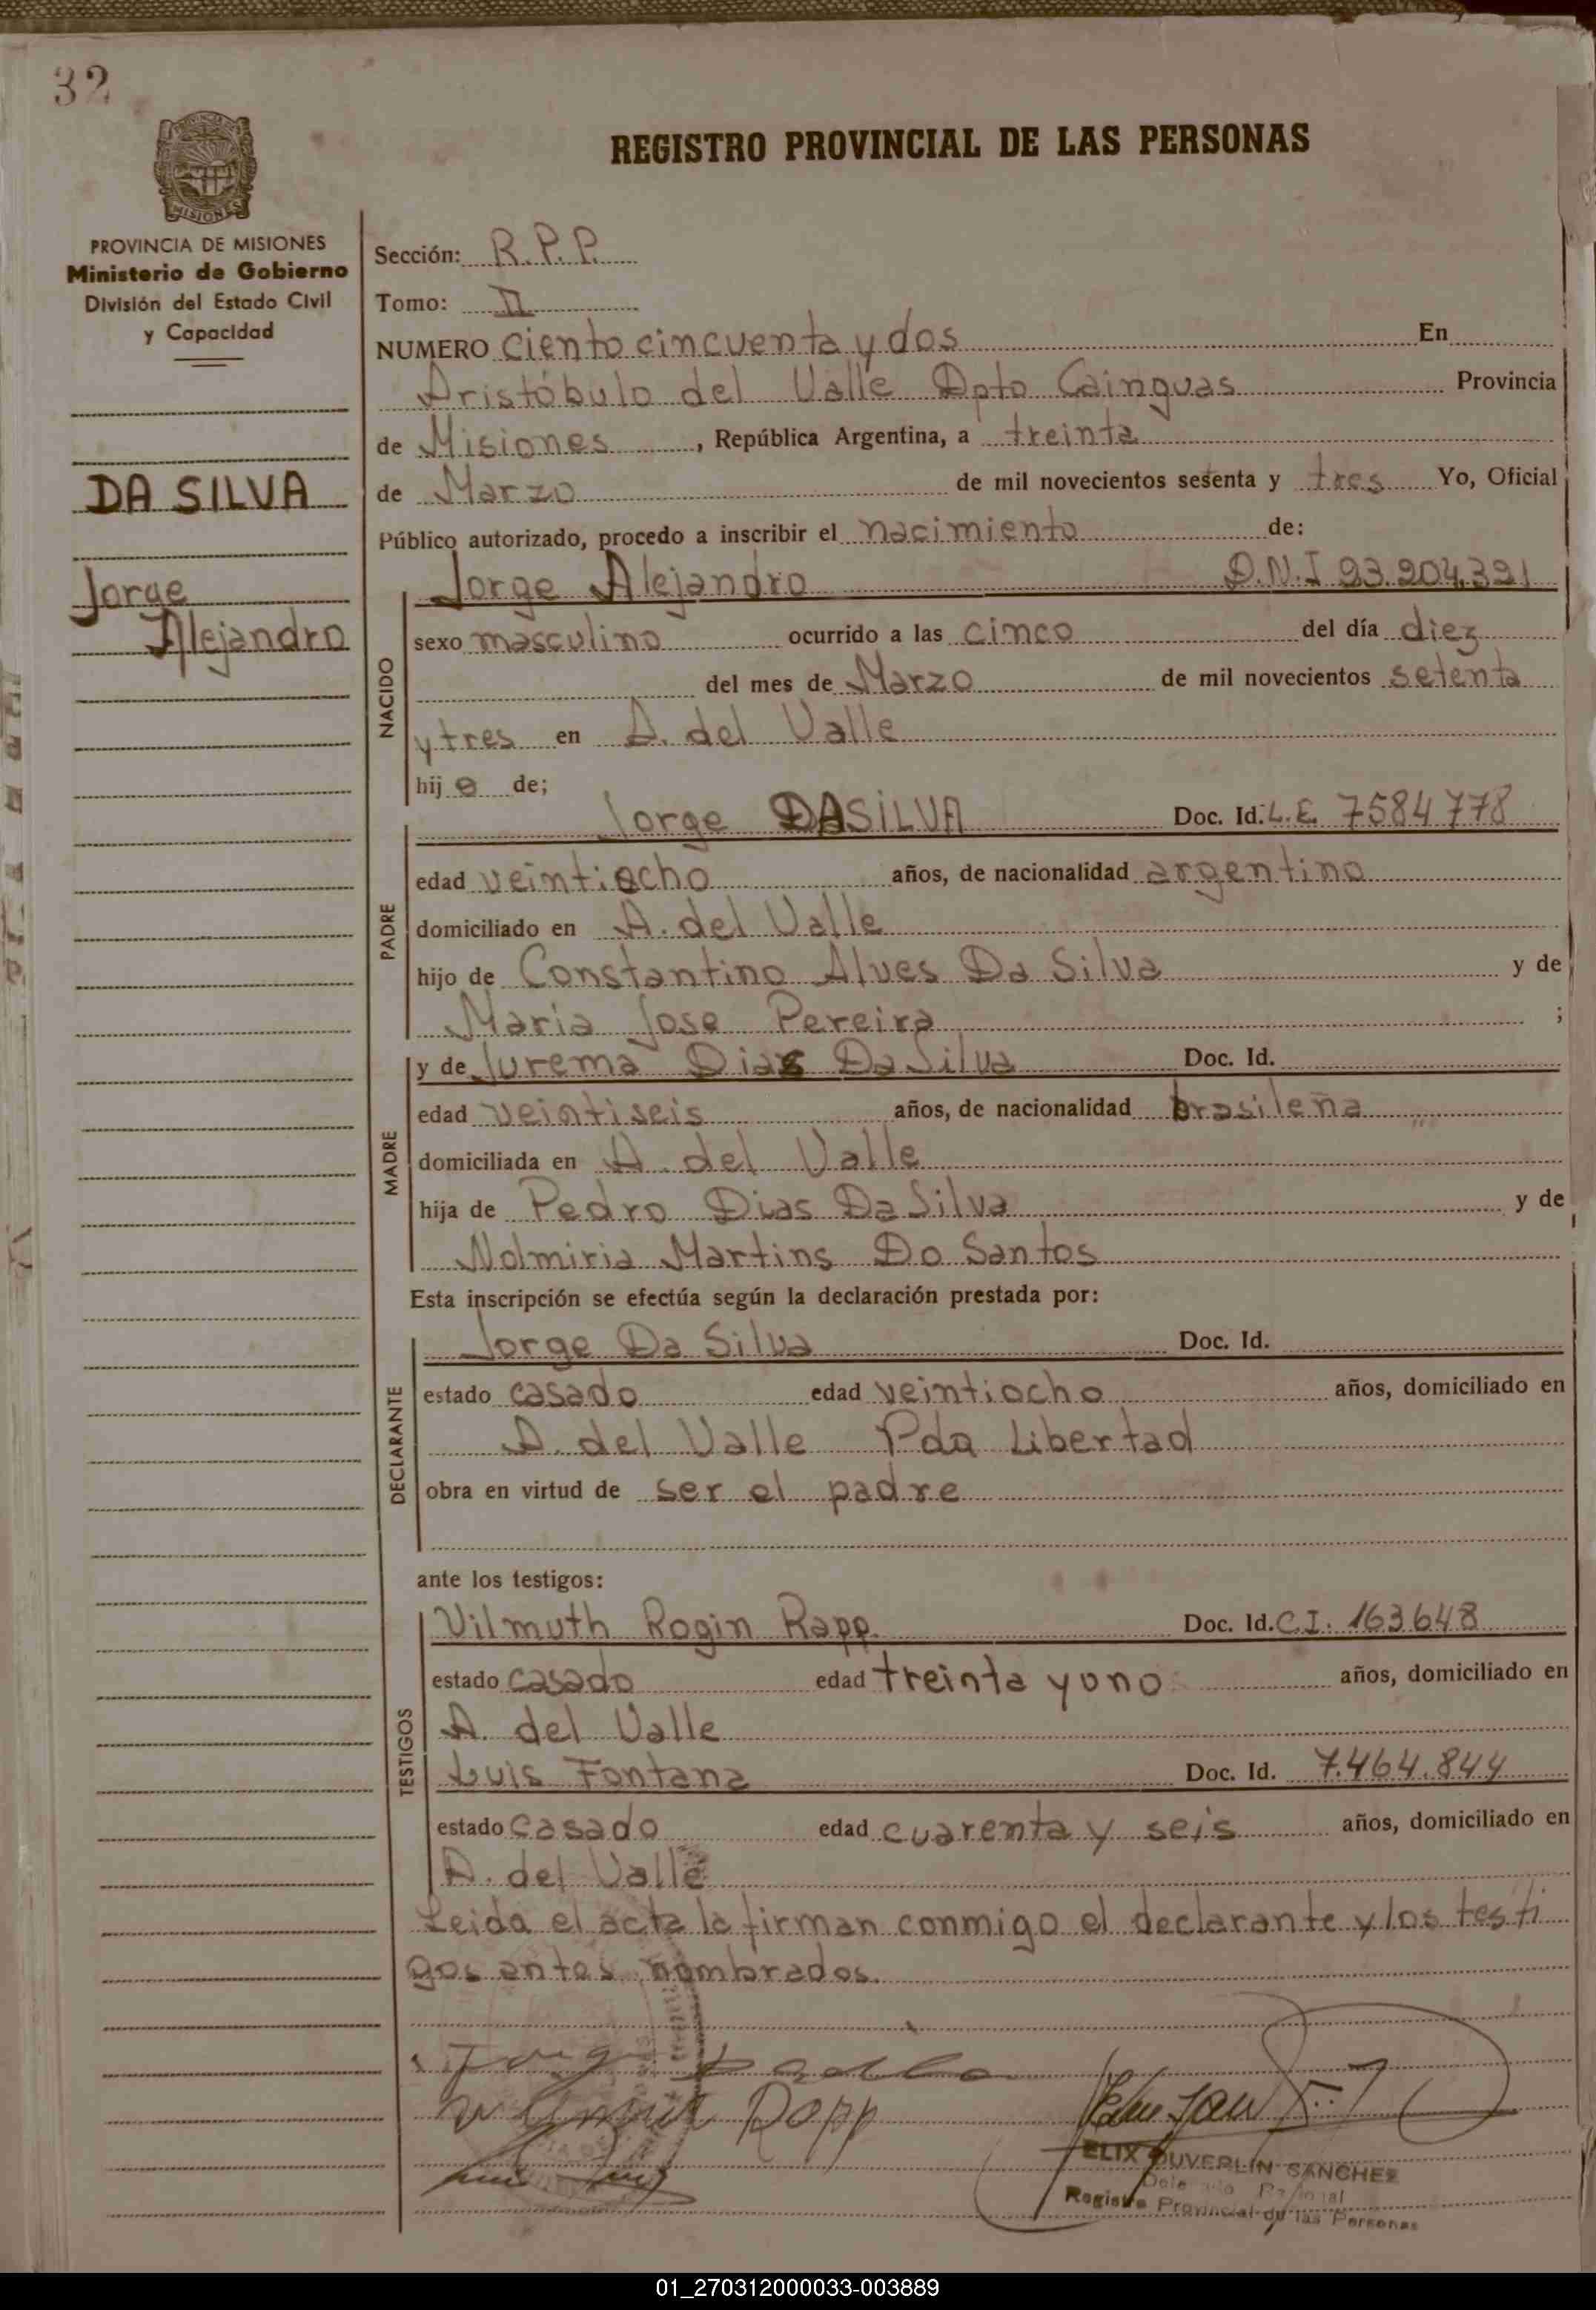 32
MISIONES
PROVINCIA DE MISIONES
Ministerio de Gobierno
División del Estado Civil
y Capacidad
DA SILVA
Jorge
Alejandro
REGISTRO PROVINCIAL DE LAS PERSONAS
Sección: R.P.P.
Tomo: II
NUMERO ciento cincuenta y dos En
Aristóbulo del Valle Dpto Cainguas Provincia
de Misiones , República Argentina, a treinta
de Marzo de mil novecientos sesenta y tres Yo, Oficial
Público autorizado, procedo a inscribir el nacimiento de:
NACIDO
Jorge Alejandro D.N.I 23.204.391
sexo masculino ocurrido a las cinco del día diez
del mes de Marzo de mil novecientos setenta
y tres en A. del Valle
hij o de;
PADRE
Jorge DASILVA Doc. Id. L.E. 7584778
edad veintiocho años, de nacionalidad argentino
domiciliado en A. del Valle
hijo de Constantino Alves Da Silva y de
Maria Jose Pereira ;
MADRE
y de Jurema Dias Da Silva Doc. Id.
edad veintiseis años, de nacionalidad brasileña
domiciliada en A. del Valle
hija de Pedro Dias Da Silva y de
Nolmiria Martins Do Santos
Esta inscripción se efectúa según la declaración prestada por:
DECLARANTE
Jorge Da Silva Doc. Id.
estado casado edad veintiocho años, domiciliado en
A. del Valle Pda Libertad
obra en virtud de ser el padre
ante los testigos:
TESTIGOS
Vilmuth Rogin Rapp. Doc. Id. C.I. 163648
estado casado edad treinta y uno años, domiciliado en
A. del Valle
Luis Fontana Doc. Id. 7.464.844
estado casado edad cuarenta y seis años, domiciliado en
A. del Valle
Leida el acta la firman conmigo el declarante y los testi
gos antes nombrados.
Rapp
ELIX DUVERLIN SANCHEZ
Registro Provincial de las Personas
01_270312000033-003889